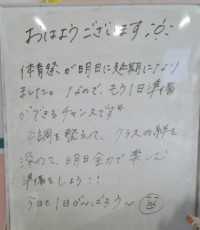 おはようございます
体育祭が明日に延期になり
ました。なので、もう1日準備
ができるチャンスです
体調を整えて、クラスの絆を
深めて、明日全力で楽しむ
準備をしよう!!
今日も1日がんばろう〜